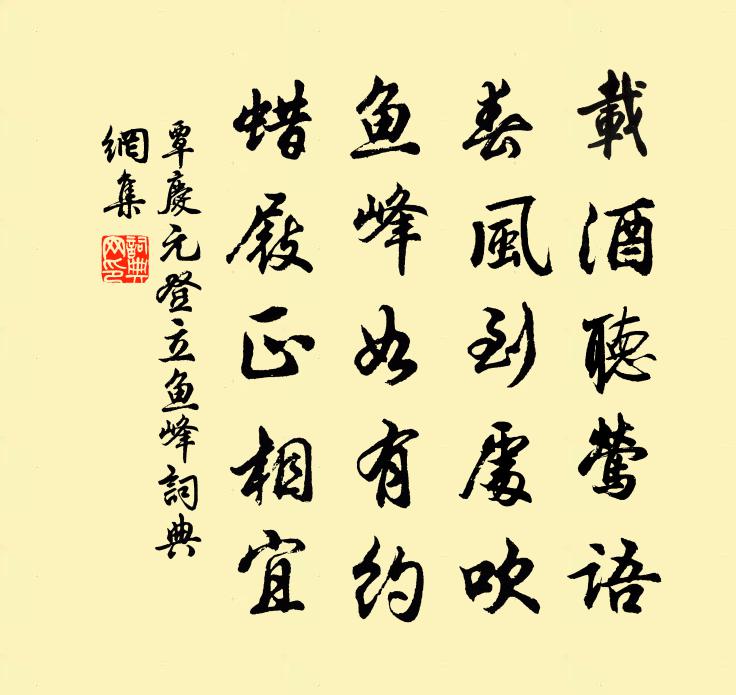 載酒聽鶯語
春風到處吹
魚峰如有約
蜡屐正相宜
覃慶元登立魚峰詞典
網集
詞典網印